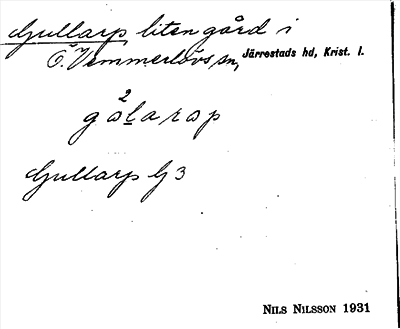 Gullarp liten gård i
Ö. Vemmerlövs sn, Järrestads hd, Krist. l.
2
gɷlarɷp
Gullarp G 3
NILS NILSSON 1931